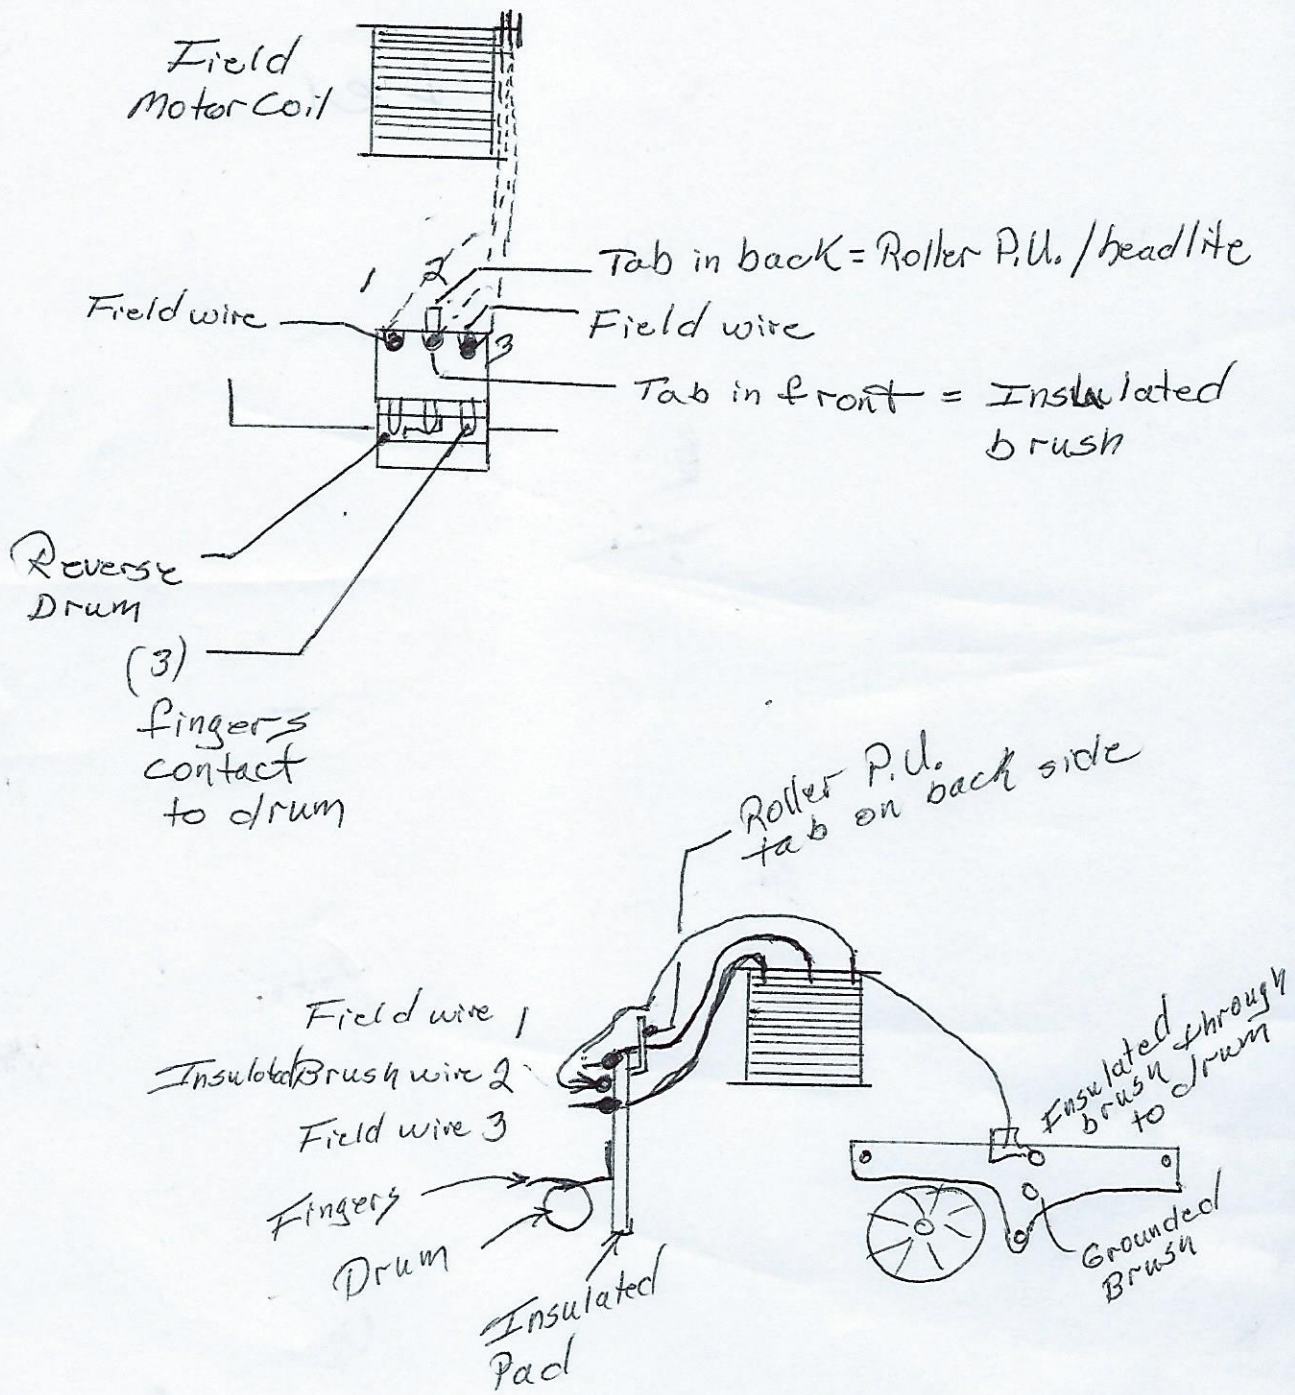 Field
Motor Coil
1
2
3
Tab in back = Roller P.U. / headlite
Field wire
Field wire
Tab in front = Insulated
brush
Reverse
Drum
(3)
fingers
contact
to drum
Roller P.U.
tab on back side
Field wire 1
Insulated Brush wire 2
Field wire 3
Fingers
Drum
Insulated
Pad
Insulated
brush through
to drum
Grounded
Brush